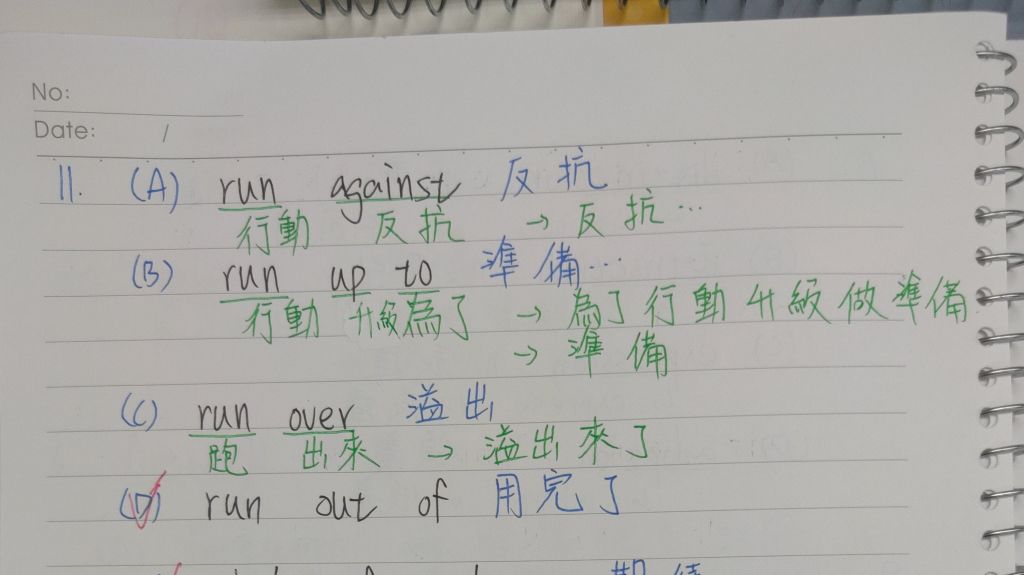 No:
Date: /
11. (A) run against 反抗
行動 反抗 → 反抗…
(B) run up to 準備…
行動 升級為了 → 為了行動升級做準備
→ 準備
(C) run over 溢出
跑 出來 → 溢出來了
(D) run out of 用完了